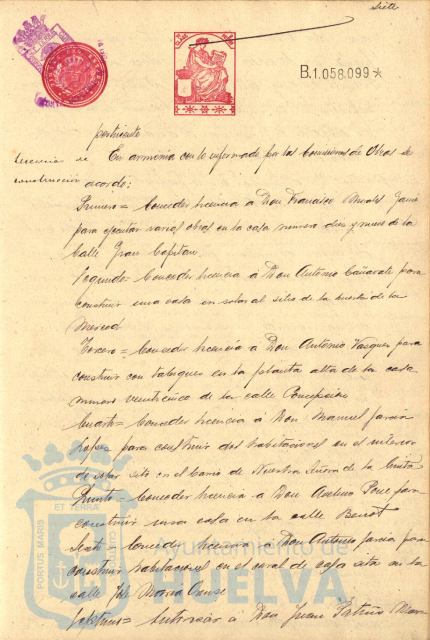 siete
B.1.058.099*
pertinente
Licencias de
construcción
En armonia con lo informado por las Comisiones de Obras se
acordo:
Primero = Conceder licencia a Don Francisco Morales
para ejecutar varias obras en la casa numero diez y nueve de la
calle Gran Capitan.
Segundo = Conceder licencia a Don Antonio Cañavate para
construir una casa en solar al sitio de la huerta de la
Merced
Tercero = Conceder licencia a Don Antonio Vazquez para
construir con tabiques en la planta alta de la casa
numero veinticinco de la calle Concepcion
Cuarto = Conceder licencia á Don Manuel Garcia
Lopez para construir dos habitaciones en el interior
de solar sito en el Barrio de Nuestra Señora de la Cinta
Quinto = Conceder licencia a Don Ponce para
construir una casa en la calle
Sexto = Conceder licencia a Don Antonio Garcia para
construir habitaciones en el corral de casa sita en la
calle José Maria
Septimo = Autorizar á Don Juan Patiño
PORTUS MARIS
ET TERRAE
CUSTODIA
Ayuntamiento de
HUELVA